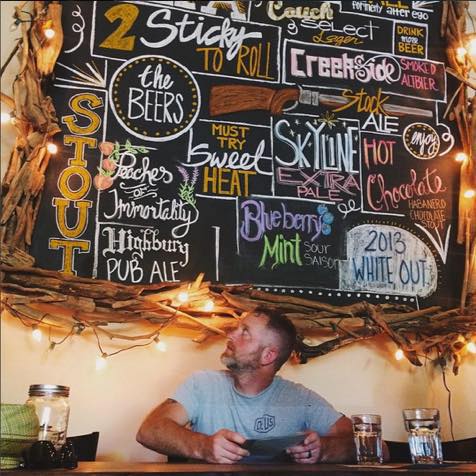 formerly alter ego
Couch
select
Lager
DRINK
more
BEER
2 Sticky
TO ROLL
CreekSide
SMOKED
ALTBIER
the
BEERS
Stock
ALE
enjoy
STOUT
MUST
TRY
Sweet
HEAT
SKYLINE
EXTRA
PALE
HOT
Chocolate
HABANERO
CHOCOLATE
STOUT
Peaches
OF
Immortality
Highbury
PUB ALE
Blueberry
Mint
SOUR
SAISON
2013
WHITE OUT